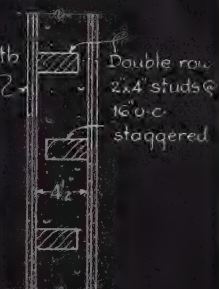 th
Double row
2"x4" studs @
16" o-c-
staggered
4½